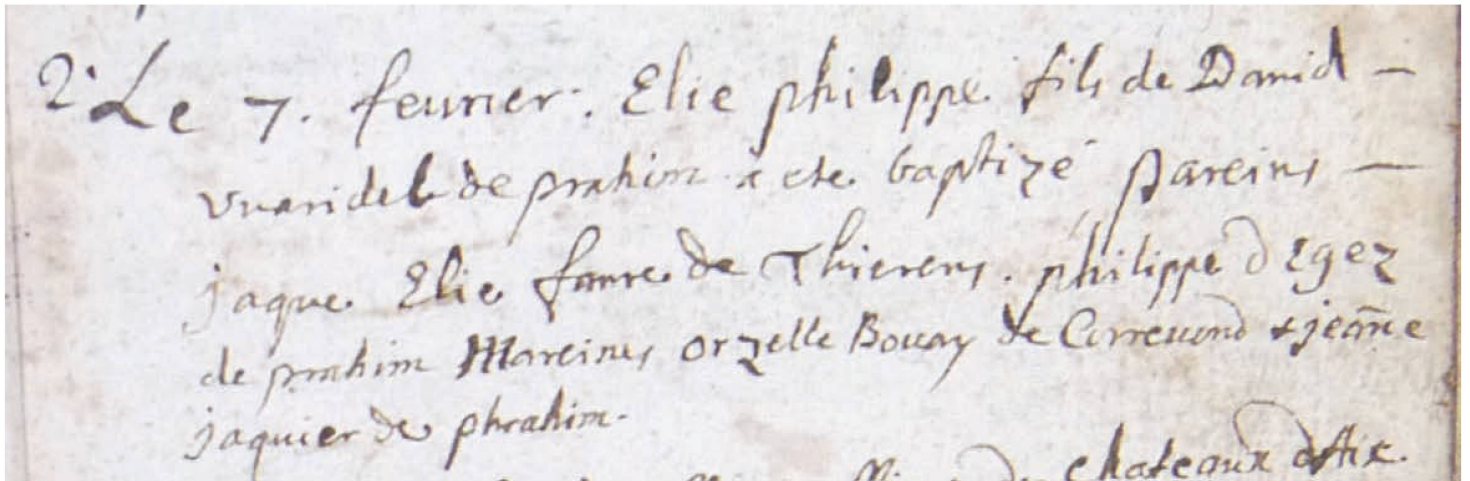 2. Le 7. feurier. Elie philippe fils de Dauid –
vuaridel de prahim a ete baptizé Pareins –
jaque Elie faure de Thierens. philippe d'Ygez
de prahim Mareines orzelle Bouay de Correuond & jeañe
jaquier de phrahim.
chateaux